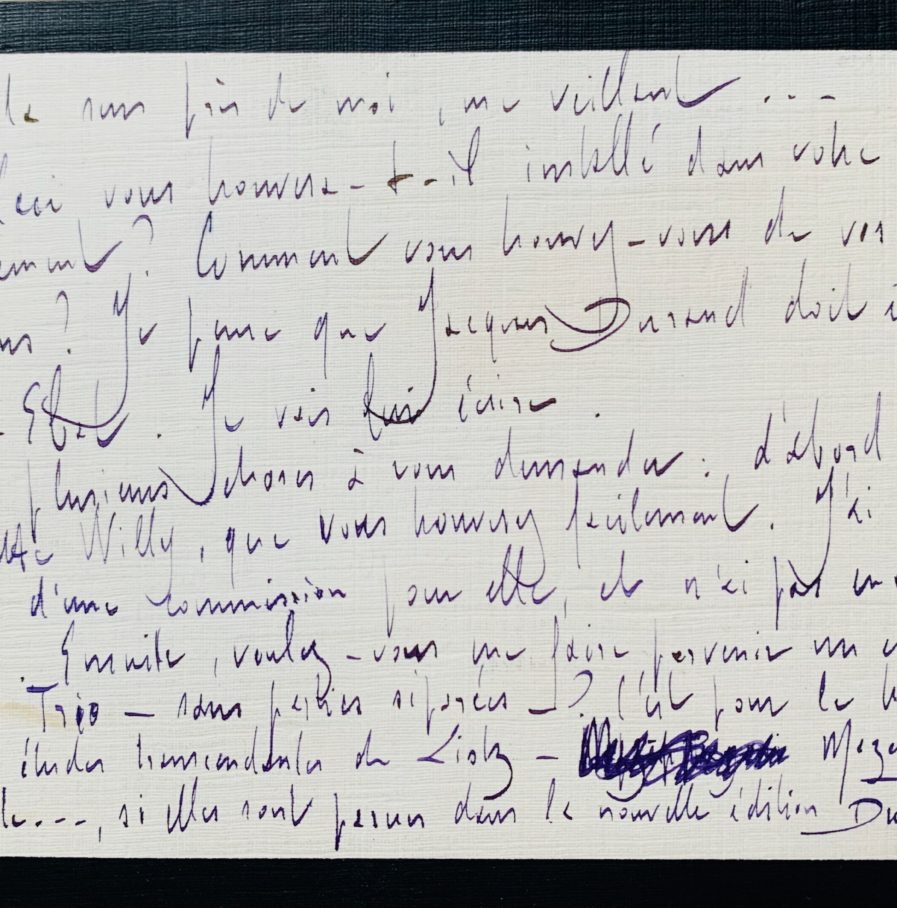 la sens près de moi, me veillant ...
Ceci vous trouvera-t-il installé dans votre
ement? Comment vous trouvez-vous de vos
ns? Je pense que Jacques Durand doit ê
État. Je vais lui écrire.
plusieurs choses à vous demander: d'abord
Willy, que vous trouverez facilement. J'ai
d'une commission pour elle, et n'ai pas
. Ensuite, voulez-vous me faire parvenir un
Trio — sans parties séparées —? C'est pour le
études transcendantes de Liszt — Mazep
le..., si elles sont parues dans la nouvelle édition Du